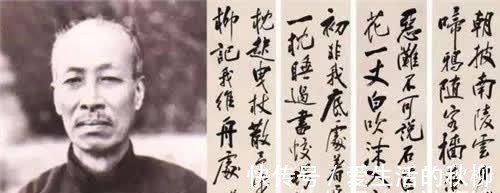 朝披南陵雲
啼鴉隨客檣
惡灘不可說石
花一丈白吹沫
初非我底處着
一枕睡過
枕起曳杖散
柳記我維舟處
快传号/爱生活的秋柳